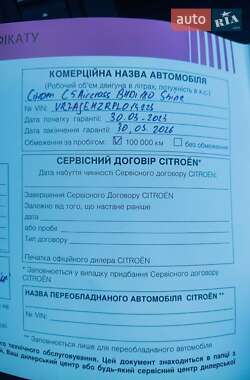 auto RIA
ФІКАТУ
КОМЕРЦІЙНА НАЗВА АВТОМОБІЛЯ
(Робочий об'єм двигуна в літрах, потужність в к.с.)
Citroen C5 Aircross BHDI 180 Shine
№ VIN:
Дата початку гарантії: 30.03.2023
Дата закінчення гарантії: 30.03.2026
Обмеження за пробігом: ☑ 100 000 км ☐ без обмеження
СЕРВІСНИЙ ДОГОВІР CITROËN*
Дата набуття чинності Сервісного договору CITROËN:
Завершення Сервісного Договору CITROËN
Залежно від того, що настане раніше
дата
або пробіг
Тип договору
Печатка офіційного дилера CITROËN
* Заповнюється у випадку придбання Сервісного договору
CITROËN
НАЗВА ПЕРЕОБЛАДНАНОГО АВТОМОБІЛЯ CITROËN **
№ VIN:
** Заповнюється лише для переобладнаного автомобіля
технічного обслуговування. Цей документ знаходиться в папці з
Ваш дилерський центр або будь-який сервісний центр дилерської